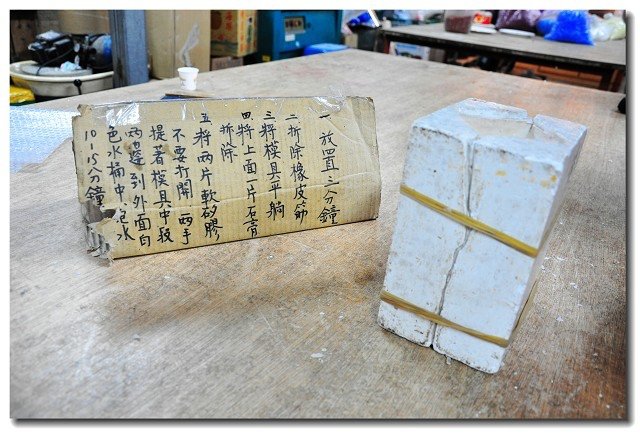 一放置三分鐘
二拆除橡皮筋
三將模具平躺
四將上面一片石膏
拆除
五將兩片軟矽膠
不要打開 兩手
提著模具中段
兩邊到外面白
色水桶中泡水
10-15分鐘